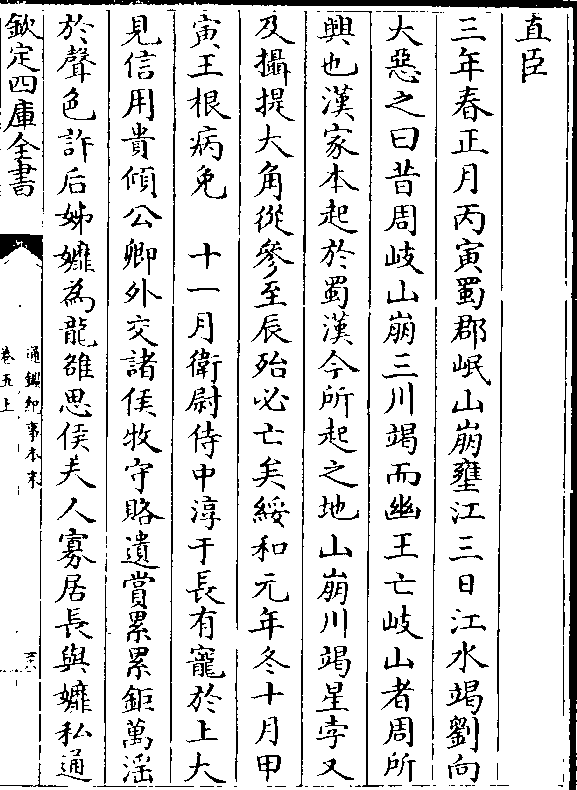 直臣
三年春正月丙寅蜀郡岷山崩壅江三日江水竭劉向
大惡之曰昔周岐山崩三川竭而幽王亡岐山者周所
興也漢家本起於蜀漢今所起之地山崩川竭星孛又
及攝提大角從參至辰殆必亡矣綏和元年冬十月甲
寅王根病免　十一月衛尉侍中淳于長有寵於上大
見信用貴傾公卿外交諸侯牧守賂遺賞累累鉅萬淫
於聲色許后姊孊為龍雒思侯夫人寡居長與孊私通
欽定四庫全書
通鑑紀事本末
卷五上